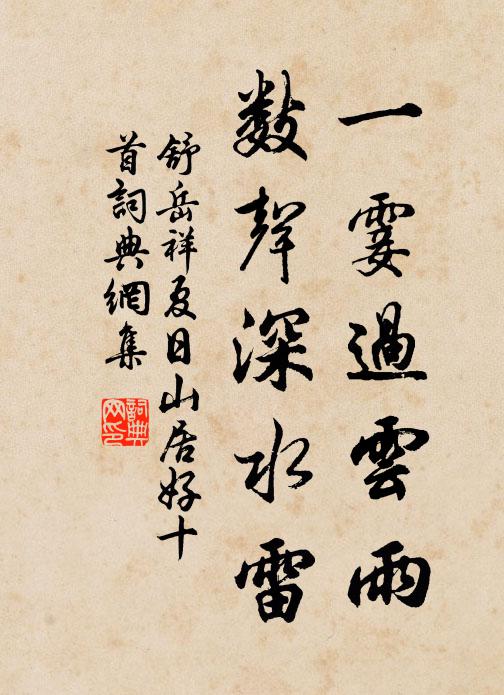 一霎過雲雨
數聲深水雷
舒岳祥夏日山居好十
首詞典網集
詞典网印